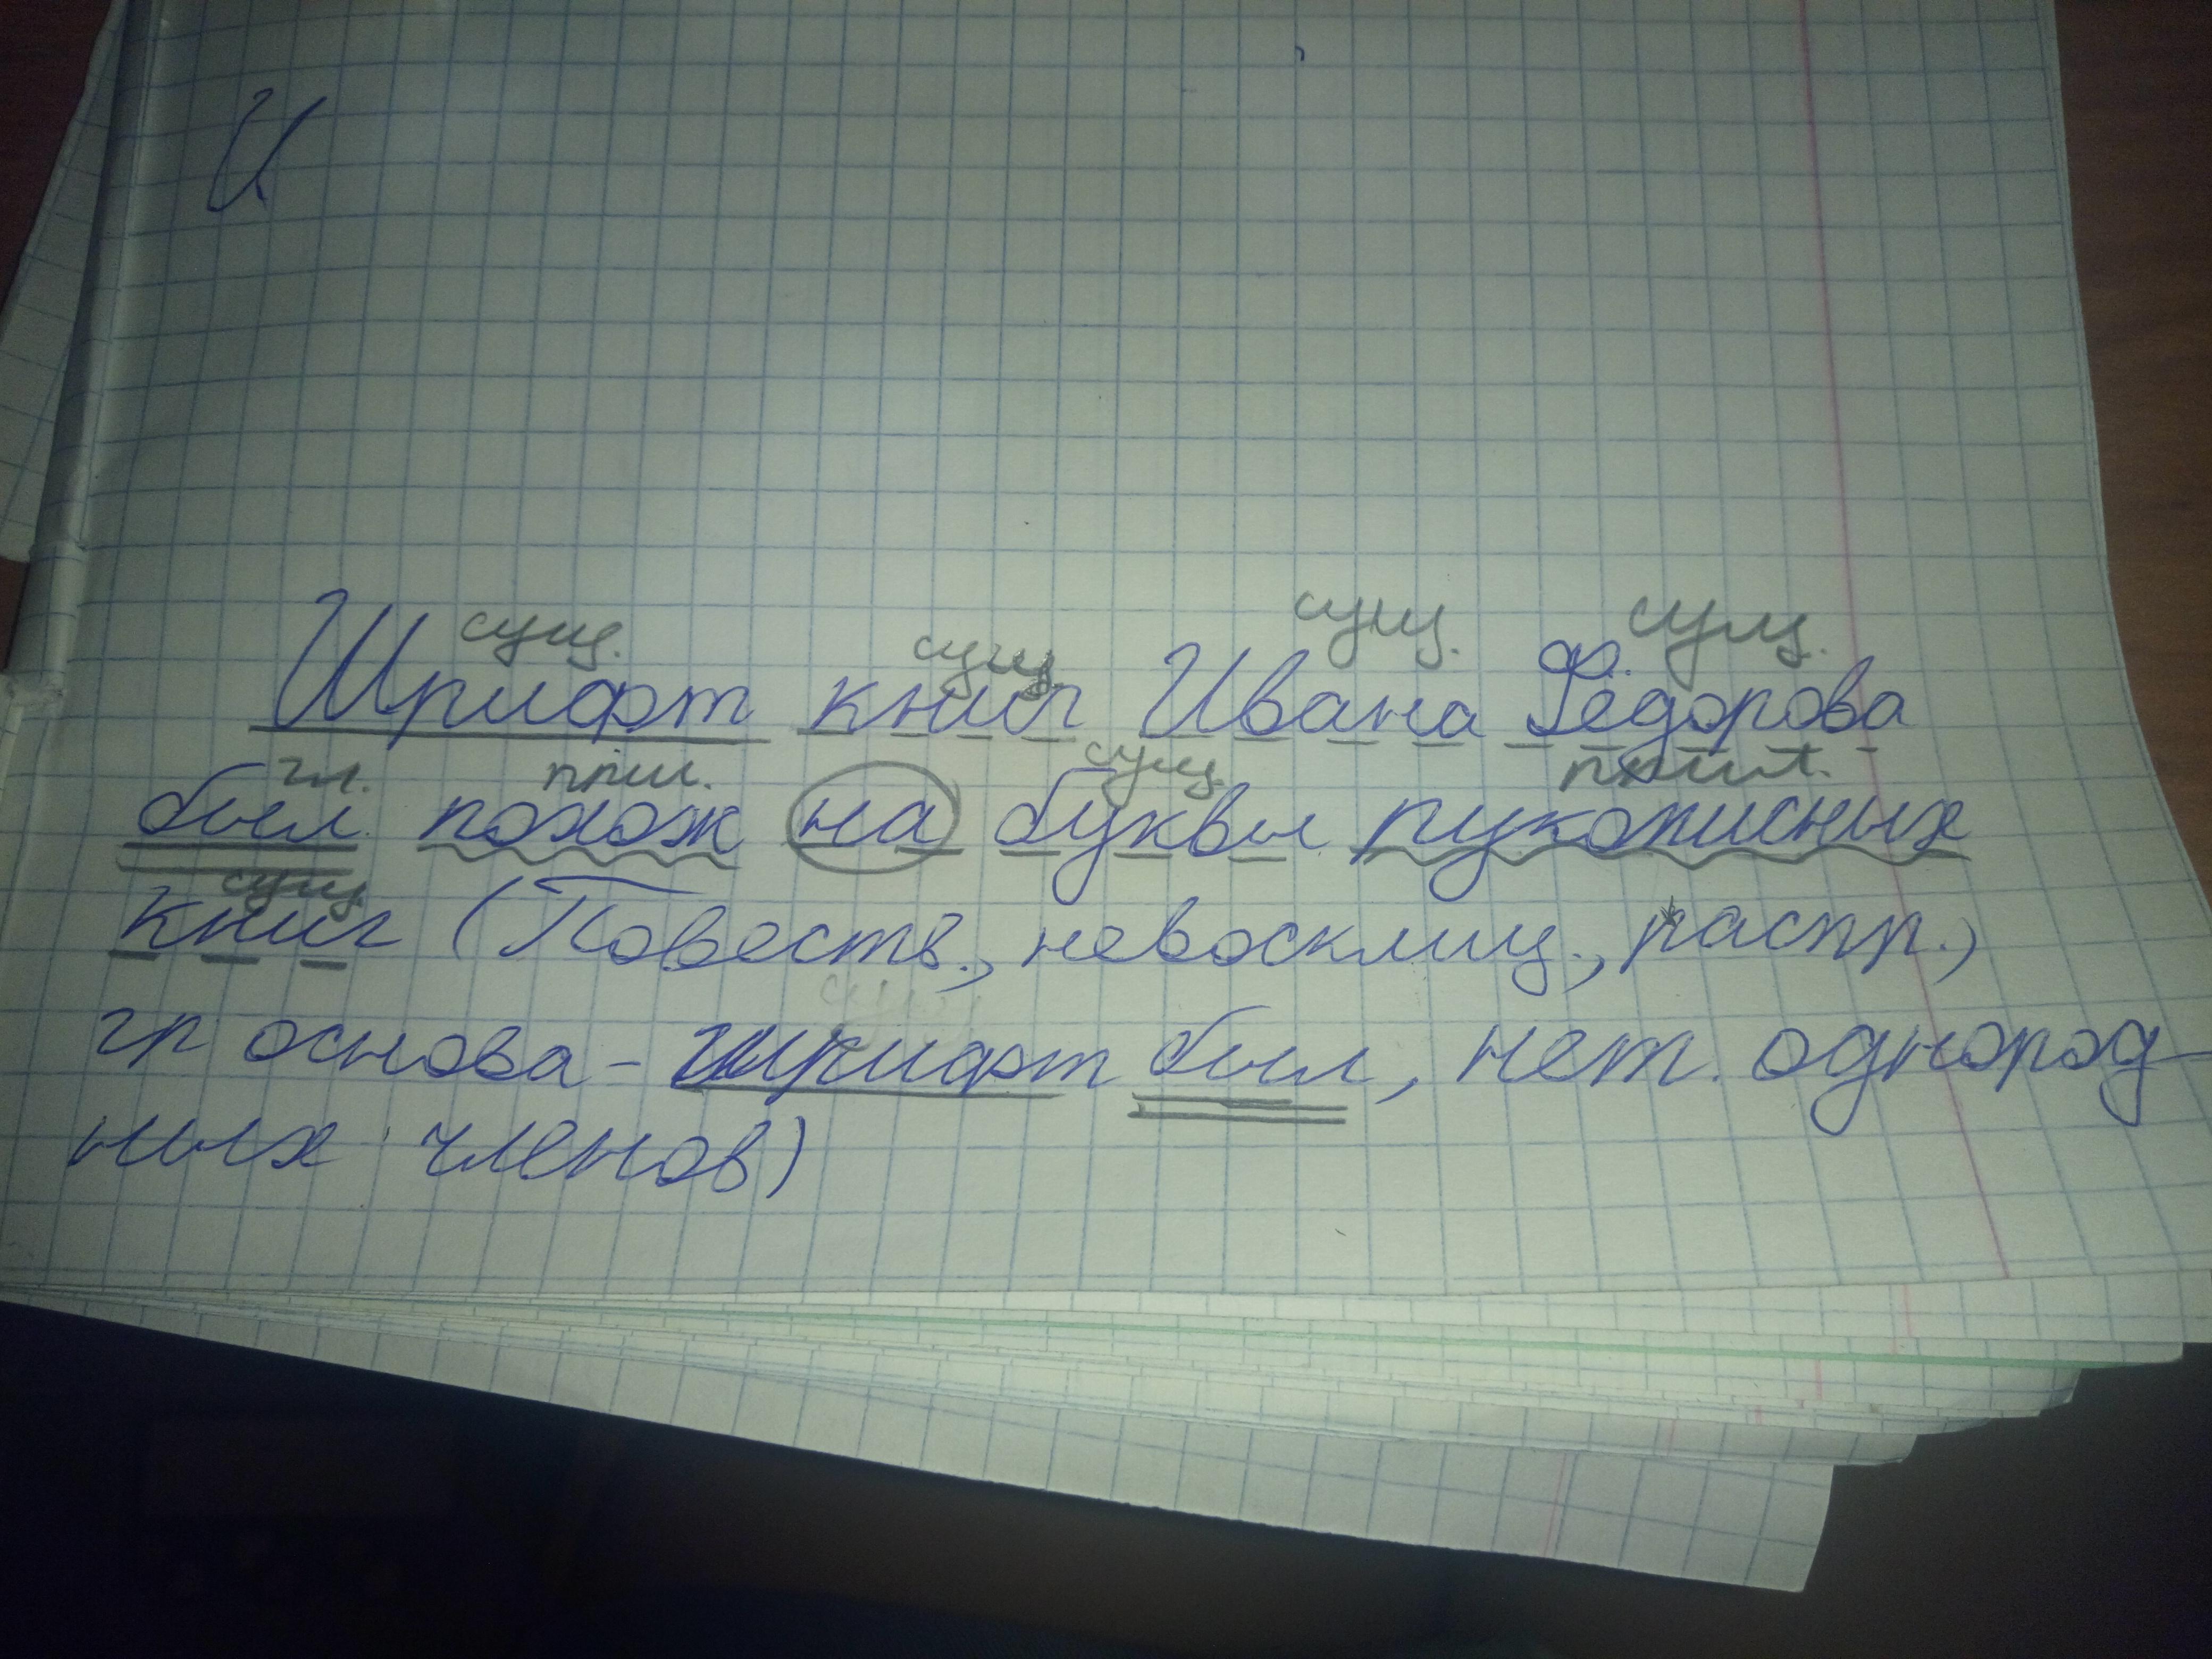 И
сущ. сущ. сущ. сущ.
Шрифт книг Ивана Фёдорова
гл. прил. сущ. прил.
был похож на буквы рукописных
сущ.
книг (Повеств., невосклиц., распр.,
гр основа - шрифт был, нет однород
ных членов)